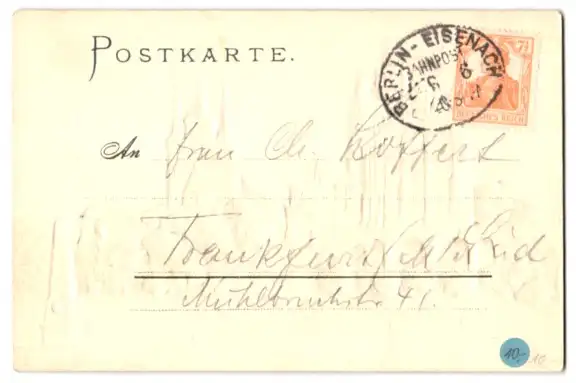 POSTKARTE.
BERLIN - EISENACH
BAHNPOST
7½
DEUTSCHES REICH
An Frau Ch. Koffert
Frankfurt
Mühlbruchstr 41.
10,- 10